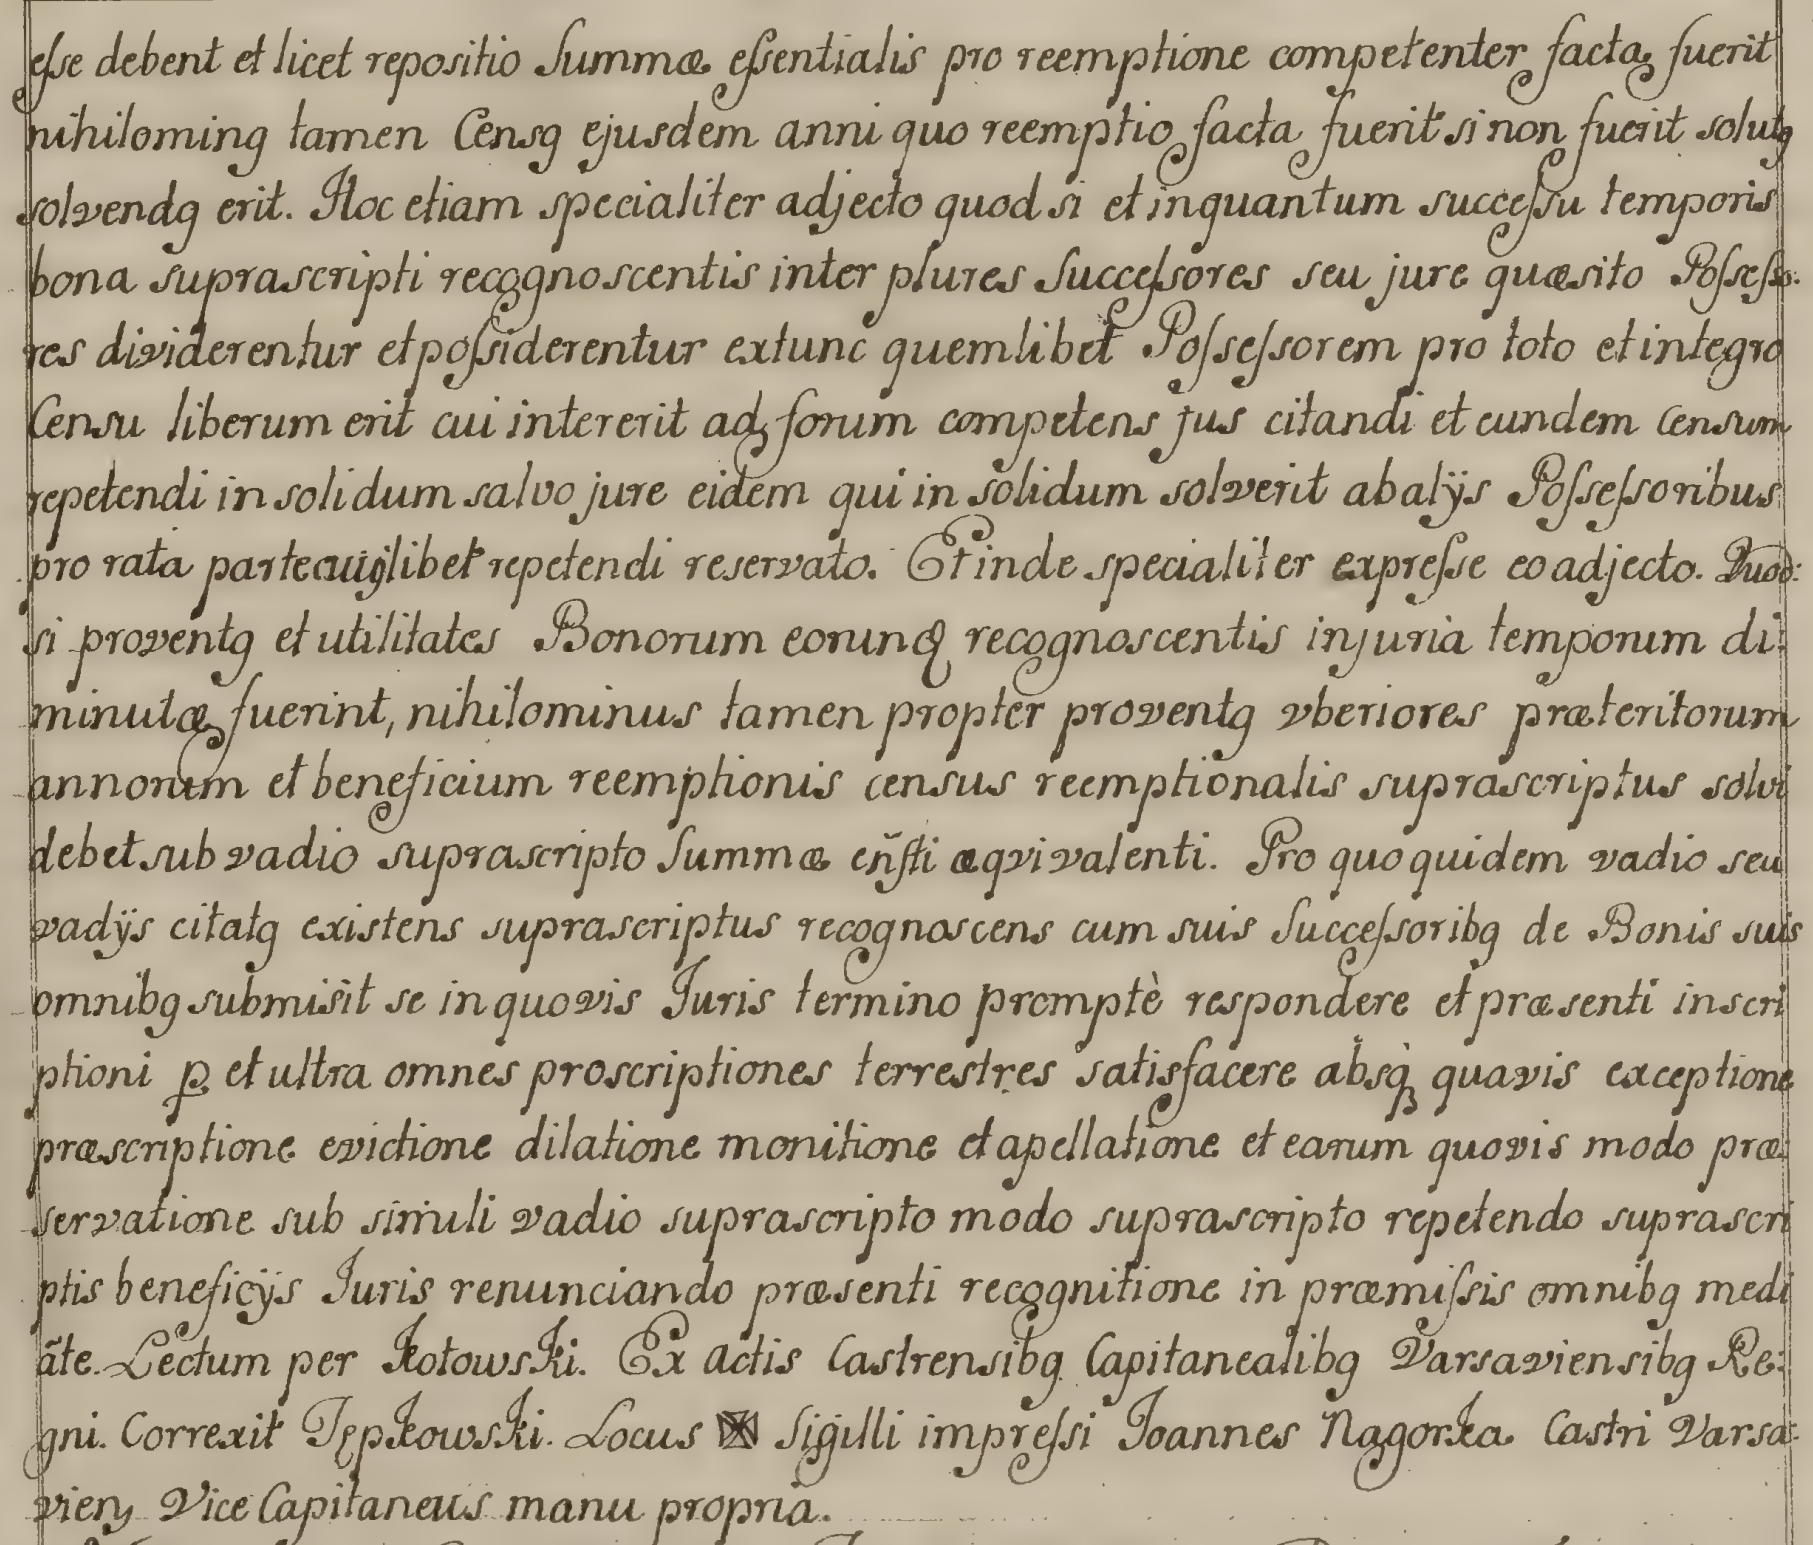 eſse debent et licet repositio Summæ eſsentialis pro reemptione competenter facta fuerit
nihilominꝯ tamen Censꝯ ejusdem anni quo reemptio facta fuerit si non fuerit solutꝯ
solvendꝯ erit. Hoc etiam specialiter adjecto quod si et inquantum succeſsu temporis
bona suprascripti recognoscentis inter plures Succeſsores seu jure quæsito Poſseſso:
res dividerentur et poſsiderentur extunc quemlibet Poſseſsorem pro toto et integro
Censu liberum erit cui intererit ad forum competens jus citandi et eundem Censum
repetendi in solidum salvo jure eidem qui in solidum solverit ab alÿs Poſseſsoribus
pro rata parte cuiꝯlibet repetendi reservato. Et inde specialiter expreſse eo adjecto. Quod:
si proventꝯ et utilitates Bonorum eorunꝗ recognoscentis injuria temporum di:
minutæ fuerint, nihilominus tamen propter proventꝯ vberiores præteritorum
annorum et beneficium reemptionis census reemptionalis suprascriptus solvi
debet sub vadio suprascripto Summæ eñſti æqvivalenti. Pro quo quidem vadio seu
vadÿs citatꝯ existens suprascriptus recognoscens cum suis Succeſsoribꝯ de Bonis suis
omnibꝯ submisit se in quovis Juris termino promptè respondere et præsenti inscri
ptioni ꝑ et ultra omnes proscriptiones terrestres satisfacere absqꝫ quavis exceptione
præscriptione evictione dilatione monitione et apellatione et earum quovis modo præ:
servatione sub simili vadio suprascripto modo suprascripto repetendo suprascri
ptis beneficÿs Juris renunciando præsenti recognitione in præmiſsis omnibꝯ medi
āte. Lectum per Kotowski. Ex Actis Castrensibꝯ Capitanealibꝯ Varsaviensibꝯ Re:
gni. Correxit Tępkowski. Locus Sigilli impreſsi Joannes Nagorka Castri Varsa:
vien̄ Vice Capitaneus manu propria.